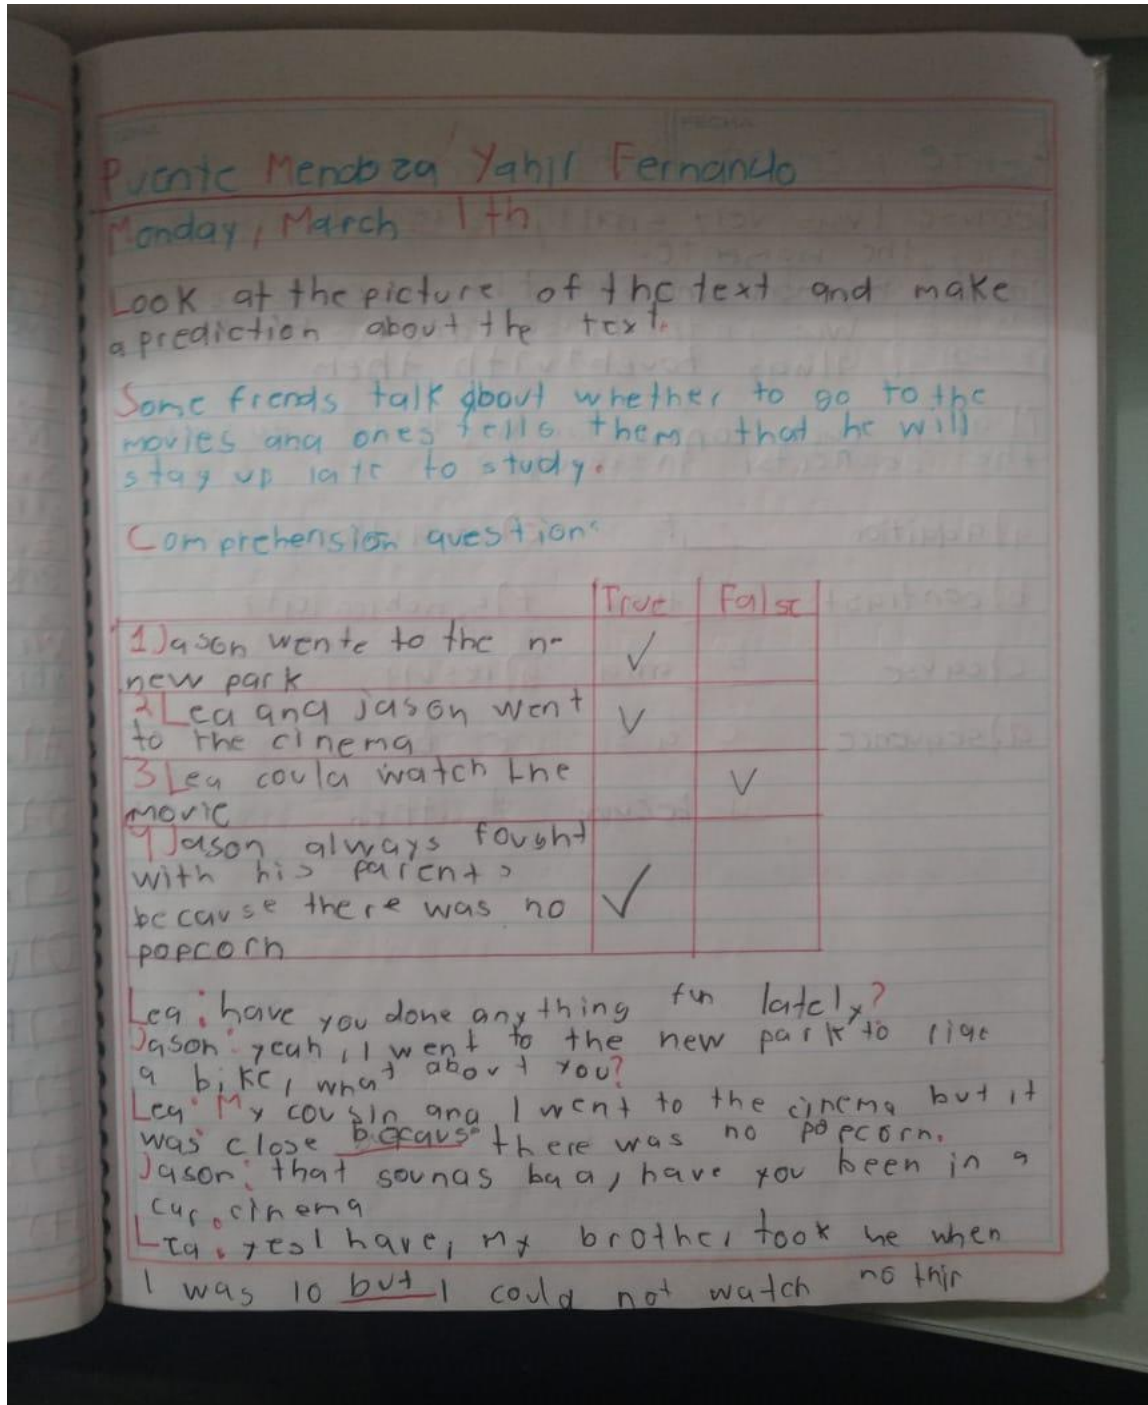 FECHA
Puente Mendoza Yahir Fernando
Monday, March 1th
Look at the picture of the text and make
a prediction about the text.
Some friends talk about whether to go to the
movies and ones tells them that he will
stay up late to study.
Comprehension question:
True False
1 Jason wente to the n-
new park ✓
2 Lea and Jason went
to the cinema ✓
3 Lea could watch the
movie ✓
4 Jason always fought
with his parents
because there was no ✓
popcorn
Lea: have you done anything fun lately?
Jason: yeah, I went to the new park to ride
a bike, what about you?
Lea: My cousin and I went to the cinema but it
was close because there was no popcorn.
Jason: that sounds bad, have you been in a
car cinema
Lea: yes I have, my brother took me when
I was 10 but I could not watch